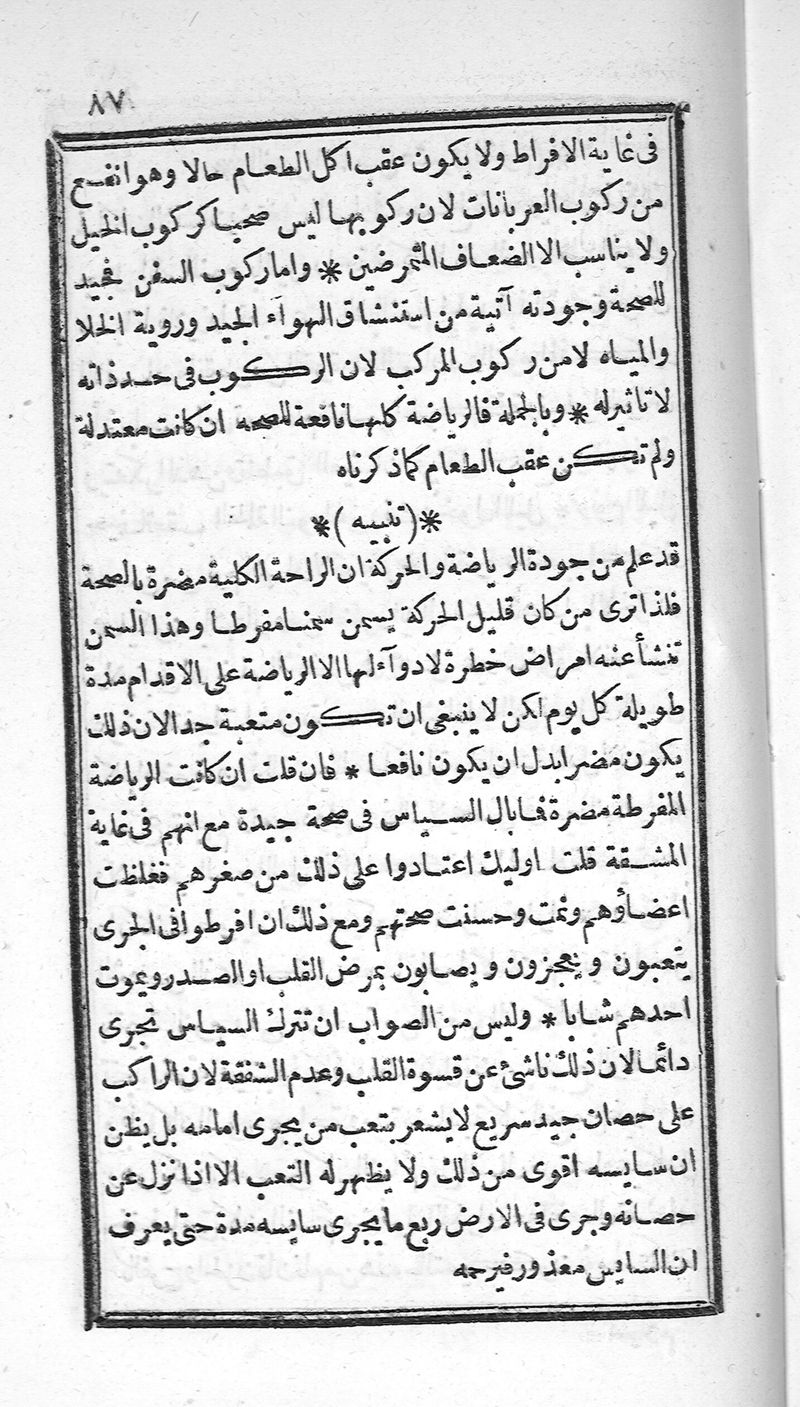 ٨٧
فى غاية الافراط ولا يكون عقب اكل الطعام حالا وهو انفع
من ركوب العربانات لان ركوبها ليس صحيا كركوب الخيل
ولا يناسب الا الضعاف المتمرضين * واما ركوب السفن فجيد
للصحة وجودته آتية من استنشاق الهوآء الجيد وروية الخلا
والمياه لا من ركوب المركب لان الركوب فى حد ذاته
لا تاثير له * وبالجملة فالرياضة كلها نافعة للصحة ان كانت معتدلة
ولم تكن عقب الطعام كما ذكرناه
* ( تنبيه ) *
قد علم من جودة الرياضة والحركة ان الراحة الكلية مضرة بالصحة
فلذا ترى من كان قليل الحركة يسمن سمنا مفرطا وهذا السمن
تنشأ عنه امراض خطرة لا دوآء لها الا الرياضة على الاقدام مدة
طويلة كل يوم لكن لا ينبغى ان تكون متعبة جدا لان ذلك
يكون مضرا بدل ان يكون نافعا * فان قلت ان كانت الرياضة
المفرطة مضرة فما بال السياس فى صحة جيدة مع انهم فى غاية
المشقة قلت اوليك اعتادوا على ذلك من صغرهم فغلظت
اعضاؤهم ونمت وحسنت صحتهم ومع ذلك ان افرطوا فى الجرى
يتعبون ويعجزون ويصابون بمرض القلب او الصدر ويموت
احدهم شابا * وليس من الصواب ان تترك السياس تجرى
دائما لان ذلك ناشئ عن قسوة القلب وعدم الشفقة لان الراكب
على حصان جيد سريع لا يشعر بتعب من يجرى امامه بل يظن
ان سايسه اقوى من ذلك ولا يظهر له التعب الا اذا نزل عن
حصانه وجرى فى الارض ربع ما يجرى سايسه مدة حتى يعرف
ان السايس معذور فيرحمه